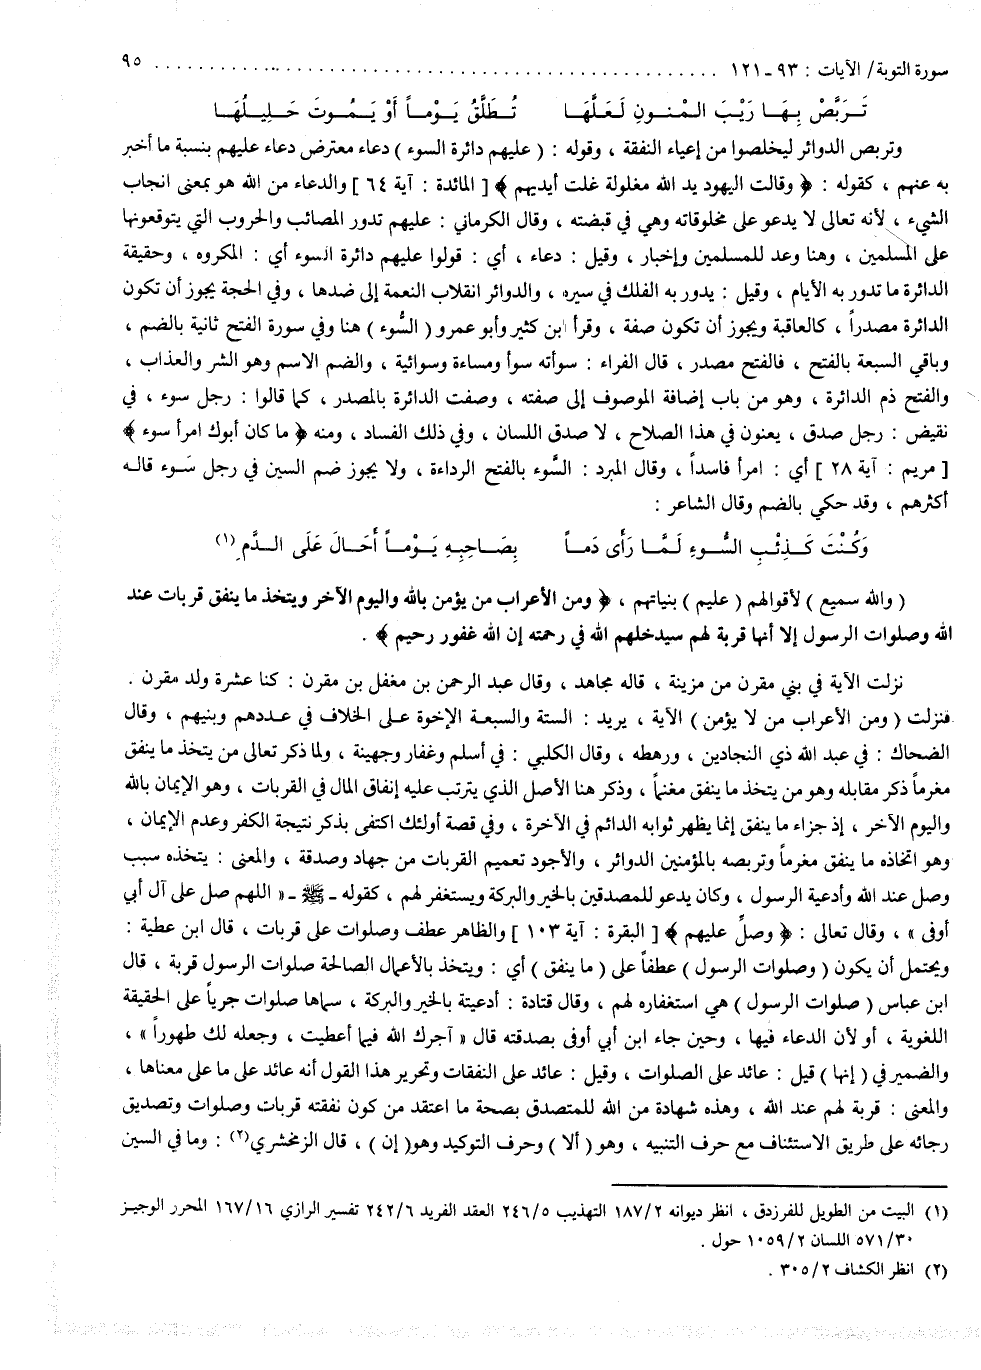 سورة التوبة/ الآيات : ٩٣ ـ ١٢١ ........................................................ ٩٥
تَرَبَّصْ بِهَا رَيْبَ المْنونِ لَعَلَّهَا     تُطَلَّقُ يَوْماً أَوْ يَمُوتَ حَلِيلُهَا
وتربص الدوائر ليخلصوا من إعياء النفقة ، وقوله : ( عليهم دائرة السوء ) دعاء معترض دعاء عليهم بنسبة ما أخبر
به عنهم ، كقوله : ﴿ وقالت اليهود يد الله مغلولة غلت أيديهم ﴾ [ المائدة : آية ٦٤ ] والدعاء من الله هو بمعنى انجاب
الشيء ، لأنه تعالى لا يدعو على مخلوقاته وهي في قبضته ، وقال الكرماني : عليهم تدور المصائب والحروب التي يتوقعونها
على المسلمين ، وهنا وعد للمسلمين وإخبار ، وقيل : دعاء ، أي : قولوا عليهم دائرة السوء أي : المكروه ، وحقيقة
الدائرة ما تدور به الأيام ، وقيل : يدور به الفلك في سيره ، والدوائر انقلاب النعمة إلى ضدها ، وفي الحجة يجوز أن تكون
الدائرة مصدراً ، كالعاقبة ويجوز أن تكون صفة ، وقرأ ابن كثير وأبو عمرو ( السُّوء ) هنا وفي سورة الفتح ثانية بالضم ،
وباقي السبعة بالفتح ، فالفتح مصدر ، قال الفراء : سوأته سوأ ومساءة وسوائية ، والضم الاسم وهو الشر والعذاب ،
والفتح ذم الدائرة ، وهو من باب إضافة الموصوف إلى صفته ، وصفت الدائرة بالمصدر ، كما قالوا : رجل سوء ، في
نقيض : رجل صدق ، يعنون في هذا الصلاح ، لا صدق اللسان ، وفي ذلك الفساد ، ومنه ﴿ ما كان أبوك امرأ سوء ﴾
[ مريم : آية ٢٨ ] أي : امرأ فاسداً ، وقال المبرد : السَّوء بالفتح الرداءة ، ولا يجوز ضم السين في رجل سَوء قاله
أكثرهم ، وقد حكي بالضم وقال الشاعر :
وَكُنْتَ كَذِئْبِ السُّوءِ لَمَّا رَأَى دَماً     بِصَاحِبِهِ يَوْماً أَحَالَ عَلَى الدَّمِ (١)
( والله سميع ) لأقوالهم ( عليم ) بنياتهم ، ﴿ ومن الأعراب من يؤمن بالله واليوم الآخر ويتخذ ما ينفق قربات عند
الله وصلوات الرسول إلا أنها قربة لهم سيدخلهم الله في رحمته إن الله غفور رحيم ﴾ .
نزلت الآية في بني مقرن من مزينة ، قاله مجاهد ، وقال عبد الرحمن بن مغفل بن مقرن : كنا عشرة ولد مقرن .
فنزلت ( ومن الأعراب من لا يؤمن ) الآية ، يريد : الستة والسبعة الإخوة على الخلاف في عددهم وبنيهم ، وقال
الضحاك : في عبد الله ذي النجادين ، ورهطه ، وقال الكلبي : في أسلم وغفار وجهينة ، ولما ذكر تعالى من يتخذ ما ينفق
مغرماً ذكر مقابله وهو من يتخذ ما ينفق مغنماً ، وذكر هنا الأصل الذي يترتب عليه إنفاق المال في القربات ، وهو الإيمان بالله
واليوم الآخر ، إذ جزاء ما ينفق إنما يظهر ثوابه الدائم في الآخرة ، وفي قصة أولئك اكتفى بذكر نتيجة الكفر وعدم الإيمان ،
وهو اتخاذه ما ينفق مغرماً وتربصه بالمؤمنين الدوائر ، والأجود تعميم القربات من جهاد وصدقة ، والمعنى : يتخذه سبب
وصل عند الله وأدعية الرسول ، وكان يدعو للمصدقين بالخير والبركة ويستغفر لهم ، كقوله ـ ﷺ ـ « اللهم صل على آل أبي
أوفى » ، وقال تعالى : ﴿ وصلِّ عليهم ﴾ [ البقرة : آية ١٠٣ ] والظاهر عطف وصلوات على قربات ، قال ابن عطية :
ويحتمل أن يكون ( وصلوات الرسول ) عطفاً على ( ما ينفق ) أي : ويتخذ بالأعمال الصالحة صلوات الرسول قربة ، قال
ابن عباس ( صلوات الرسول ) هي استغفاره لهم ، وقال قتادة : أدعيتة بالخير والبركة ، سماها صلوات جرياً على الحقيقة
اللغوية ، أو لأن الدعاء فيها ، وحين جاء ابن أبي أوفى بصدقته قال « آجرك الله فيما أعطيت ، وجعله لك طهوراً » ،
والضمير في ( إنها ) قيل : عائد على الصلوات ، وقيل : عائد على النفقات وتحرير هذا القول أنه عائد على ما على معناها ،
والمعنى : قربة لهم عند الله ، وهذه شهادة من الله للمتصدق بصحة ما اعتقد من كون نفقته قربات وصلوات وتصديق
رجائه على طريق الاستئناف مع حرف التنبيه ، وهو ( ألا ) وحرف التوكيد وهو( إن ) ، قال الزمخشري(٢) : وما في السين
(١) البيت من الطويل للفرزدق ، انظر ديوانه ١٨٧/٢ التهذيب ٢٤٦/٥ العقد الفريد ٢٤٢/٦ تفسير الرازي ١٦٧/١٦ المحرر الوجيز
٥٧١/٣٠ اللسان ١٠٥٩/٢ حول .
(٢) انظر الكشاف ٣٠٥/٢ .